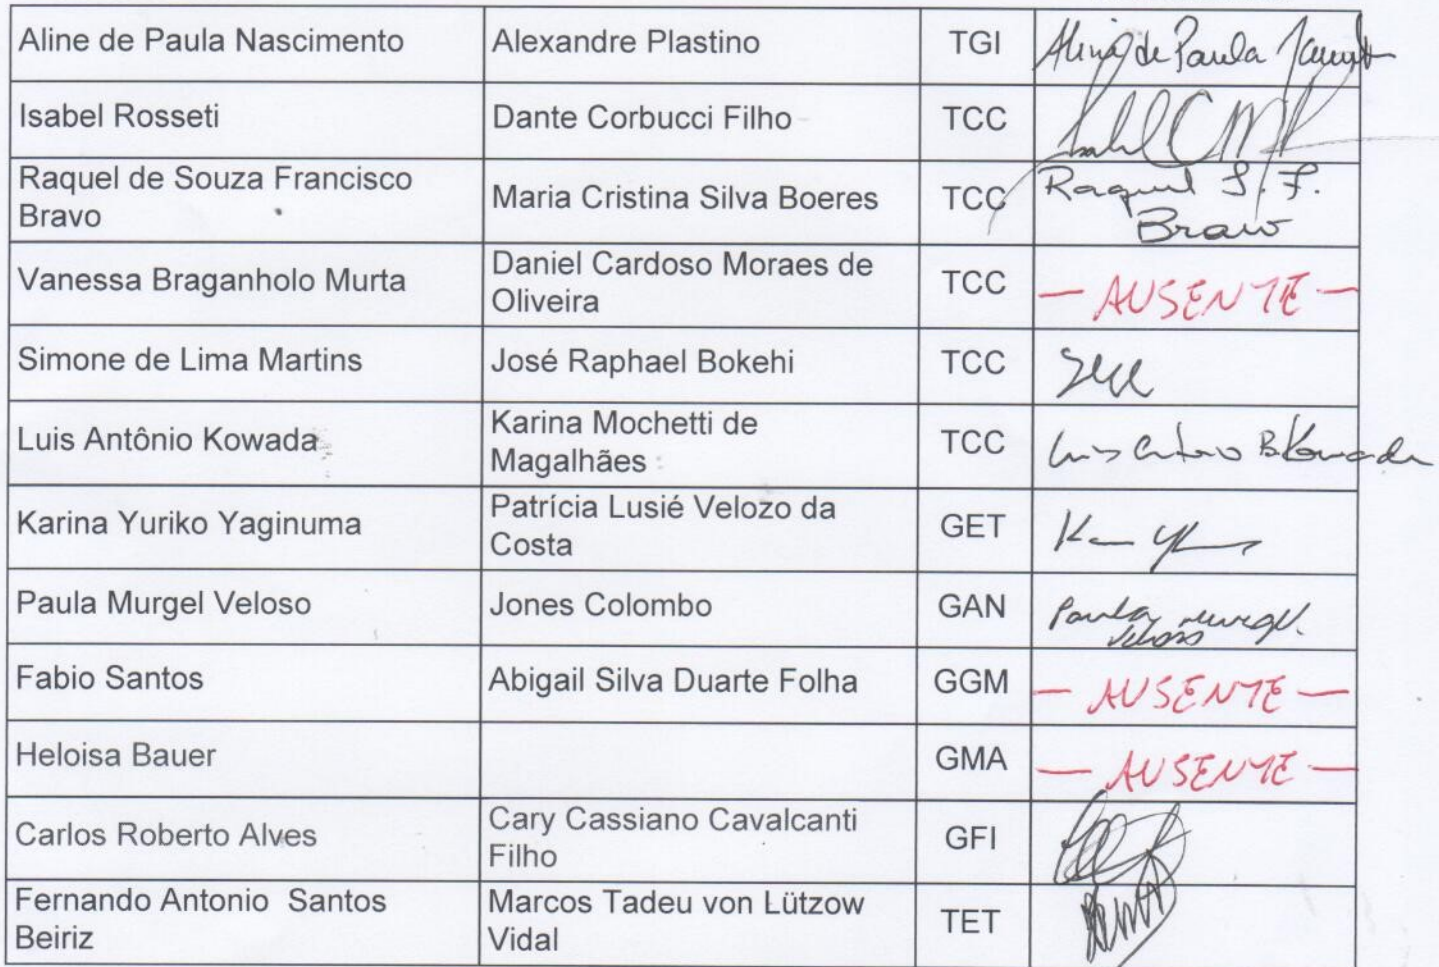 Aline de Paula Nascimento Alexandre Plastino TGI Aline de Paula
Isabel Rosseti Dante Corbucci Filho TCC Isabel CMR
Raquel de Souza Francisco Maria Cristina Silva Boeres TCC Raquel S. F.
Bravo Bravo
Vanessa Braganholo Murta Daniel Cardoso Moraes de TCC — AUSENTE —
Oliveira
Simone de Lima Martins José Raphael Bokehi TCC
Luis Antônio Kowada Karina Mochetti de TCC Luis Antonio B Kowada
Magalhães
Karina Yuriko Yaginuma Patrícia Lusié Velozo da GET
Costa
Paula Murgel Veloso Jones Colombo GAN Paula Murgel
Veloso
Fabio Santos Abigail Silva Duarte Folha GGM — AUSENTE —
Heloisa Bauer GMA — AUSENTE —
Carlos Roberto Alves Cary Cassiano Cavalcanti GFI
Filho
Fernando Antonio Santos Marcos Tadeu von Lützow TET
Beiriz Vidal